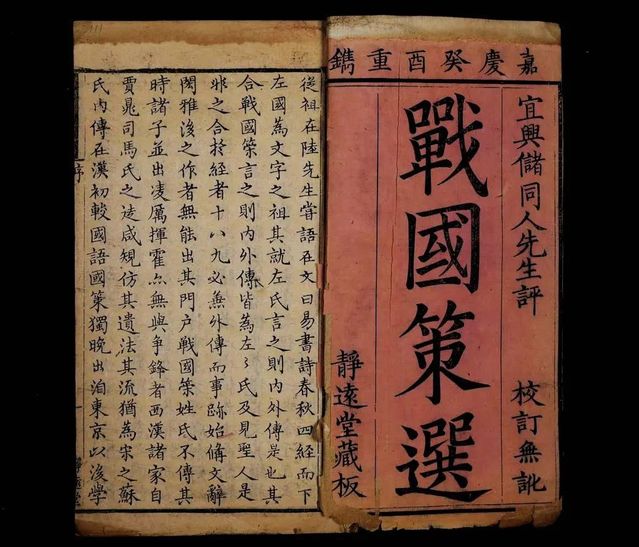 嘉慶癸酉重鐫
宜興儲同人先生評 校訂無訛
戰國策選
靜遠堂藏板
從祖在陸先生嘗語在文曰易書詩春秋四經而下
左國為文字之祖其就左氏言之則內外傳是也其
合戰國策言之則內外傳皆為左氏及見聖人是
非之合於經者十八九必無外傳而事跡始備文辭
閎雅後之作者無能出其門戶戰國策姓氏不傳其
時諸子並出凌厲揮霍亦無與爭鋒者西漢諸家自
賈晁司馬氏之徒咸規仿其遺法其流猶為宋之蘇
氏內傳在漢初較國語國策獨晚出洎東京以後學
序